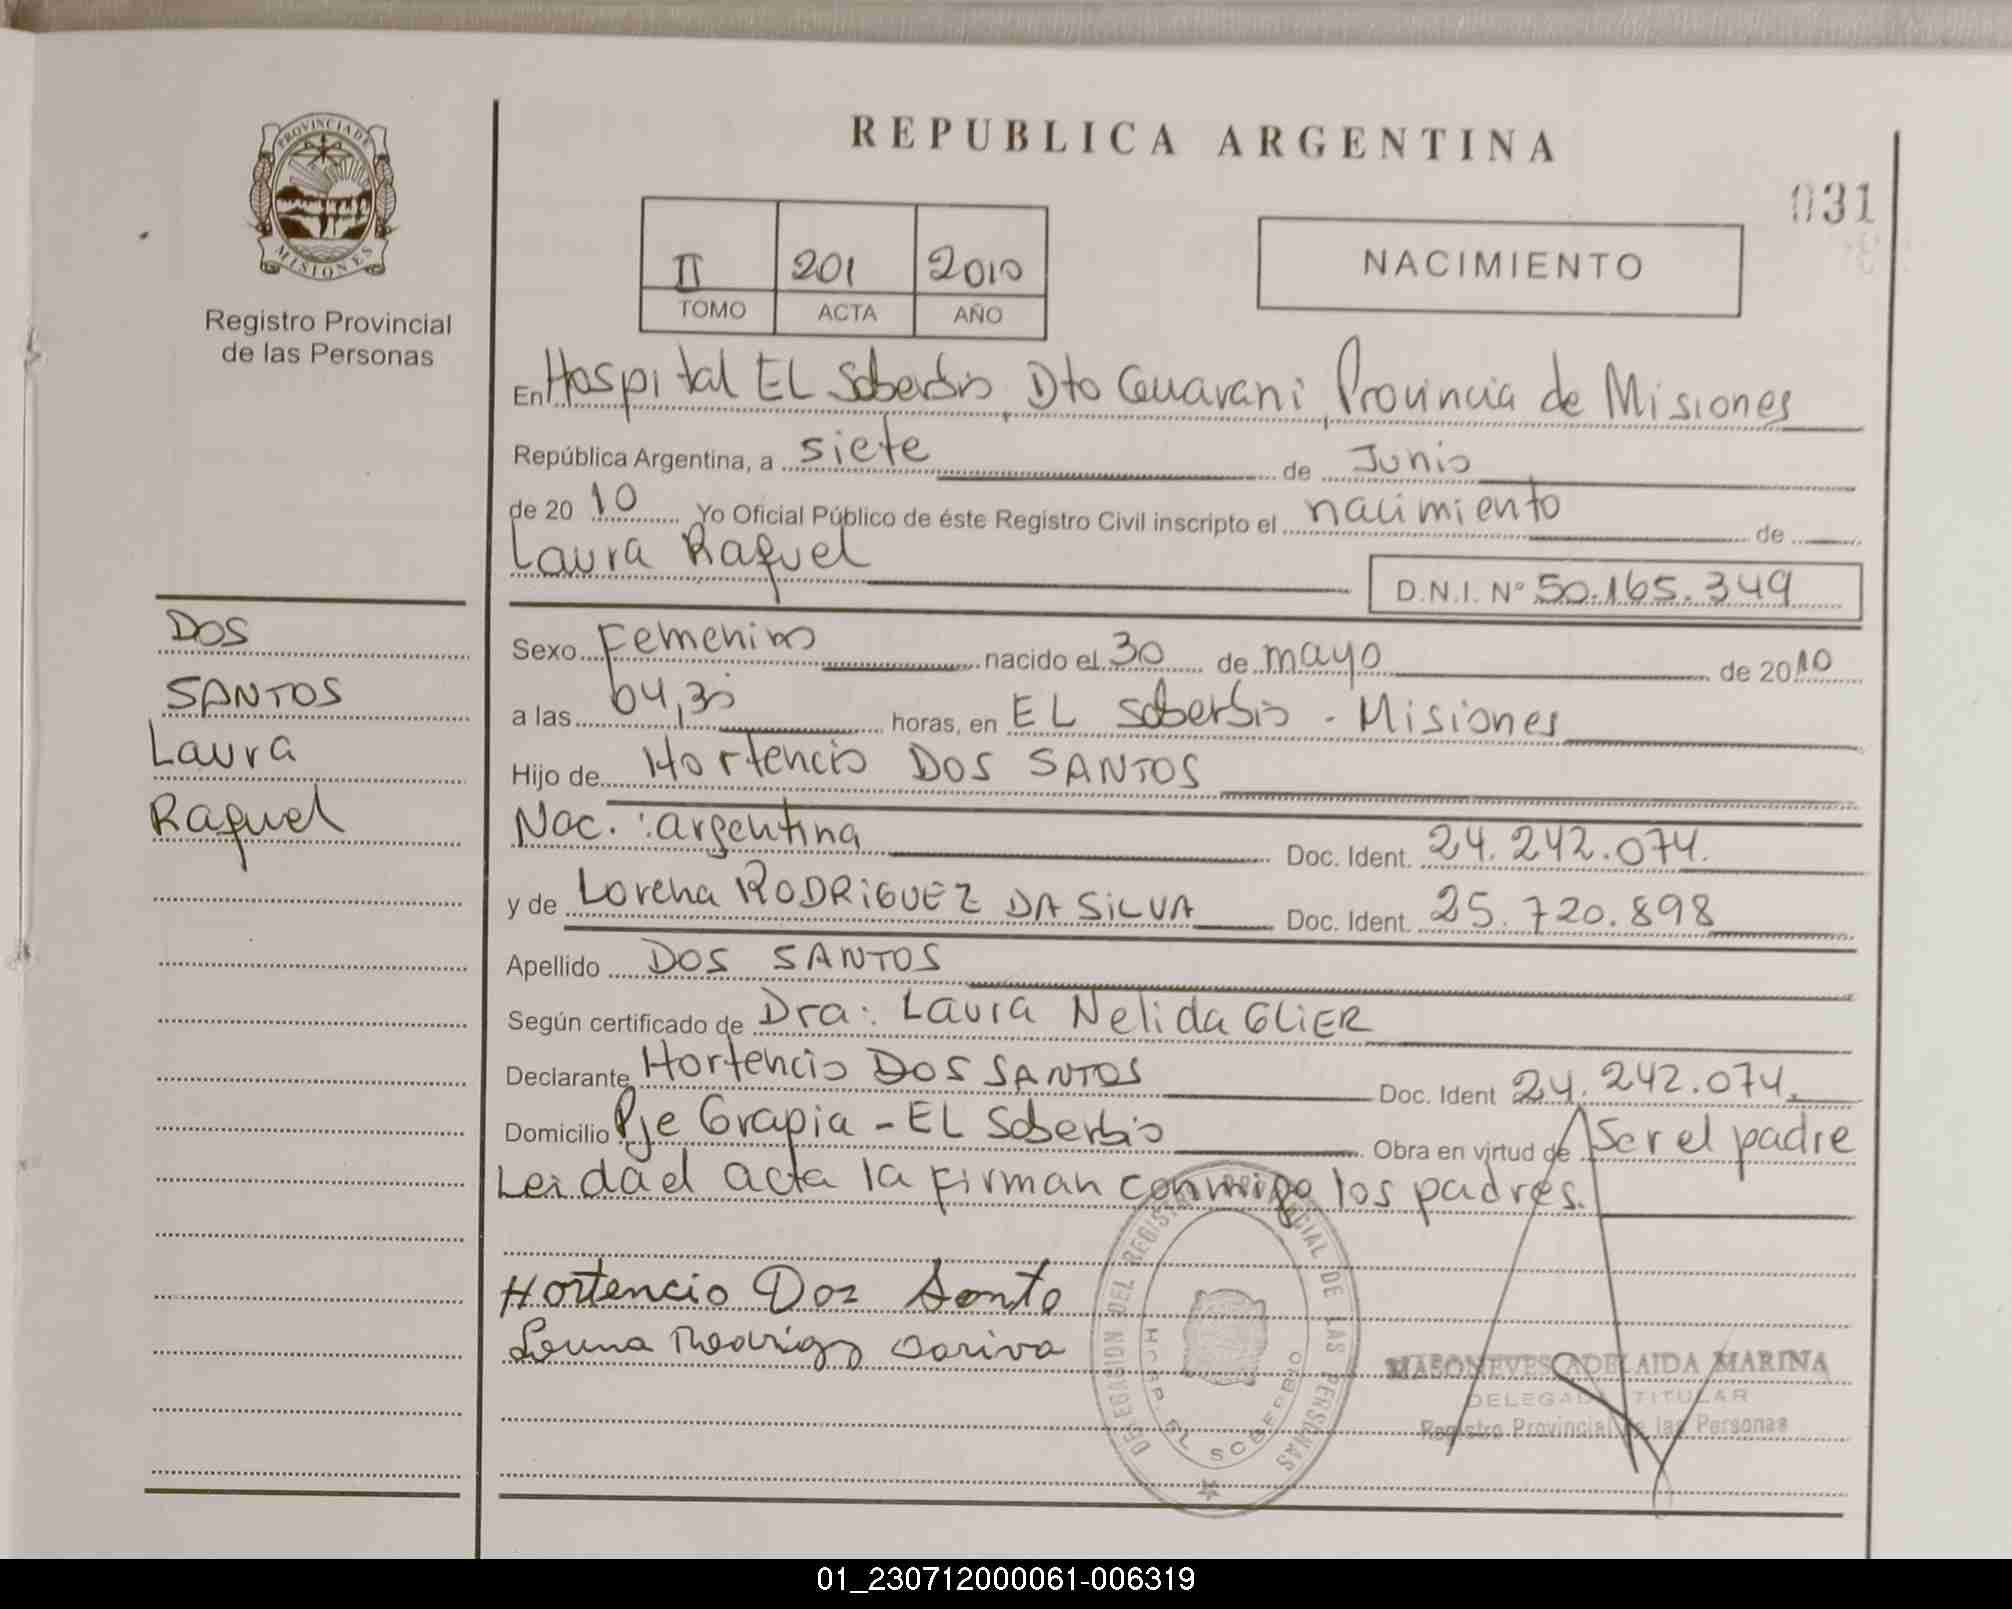 PROVINCIA DE
MISIONES
Registro Provincial
de las Personas
DOS
SANTOS
Laura
Raquel
REPUBLICA ARGENTINA
031
II 201 2010
TOMO ACTA AÑO
NACIMIENTO
En Hospital EL Soberbio, Dto Guarani, Provincia de Misiones
República Argentina, a siete de Junio
de 2010 Yo Oficial Público de éste Registro Civil inscripto el nacimiento de
Laura Raquel
D.N.I. Nº 50.165.349
Sexo Femenino nacido el 30 de mayo de 2010
a las 04,30 horas, en EL Soberbio - Misiones
Hijo de Hortencio DOS SANTOS
Nac.: argentina Doc. Ident. 24.242.074.
y de Lorena RODRIGUEZ DA SILVA Doc. Ident. 25.720.898
Apellido DOS SANTOS
Según certificado de Dra: Laura Nelida GLIER
Declarante Hortencio DOS SANTOS Doc. Ident 24.242.074.
Domicilio Pje Grapia - EL Soberbio Obra en virtud de Ser el padre
Leida el acta la firman conmigo los padres.
Hortencio Dos Santo
DELEGACION DEL REGISTRO PROVINCIAL DE LAS PERSONAS
HOSP. EL SOBERBIO
MASONEVES ADELAIDA MARINA
DELEGADA TITULAR
Registro Provincial de las Personas
01_230712000061-006319